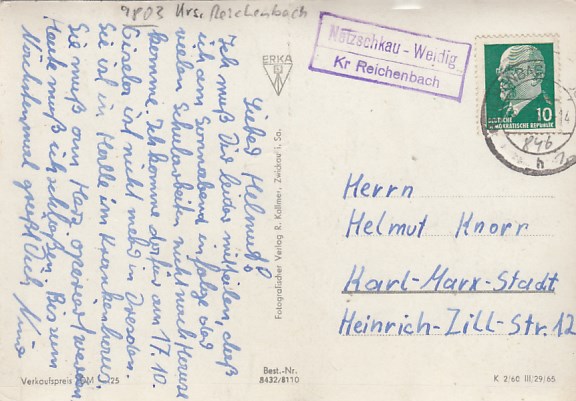 9803 Krs. Reichenbach
Netzschkau - Weidig
Kr Reichenbach
ERKA
10
DEUTSCHE
DEMOKRATISCHE REPUBLIK
Lieber Helmut!
Ich muß Dir leider mitteilen, daß
ich am Sonnabend infolge der
vielen Schularbeiten nicht nach Hause
komme. Ich komme dafür am 17.10.
Gisela ist nicht mehr in Dresden.
Sie ist in Halle im Krankenhaus.
Sie muß am Herz operiert werden.
Heute muß ich schließen. Bis zum
Nächstenmal grüßt Dich
Fotografischer Verlag R. Kallmer, Zwickau i. Sa.
Herrn
Helmut Knorr
Karl-Marx-Stadt
Heinrich-Zill-Str. 12
Verkaufspreis DM 25
Best.-Nr.
8432/8110
K 2/60 III/29/65